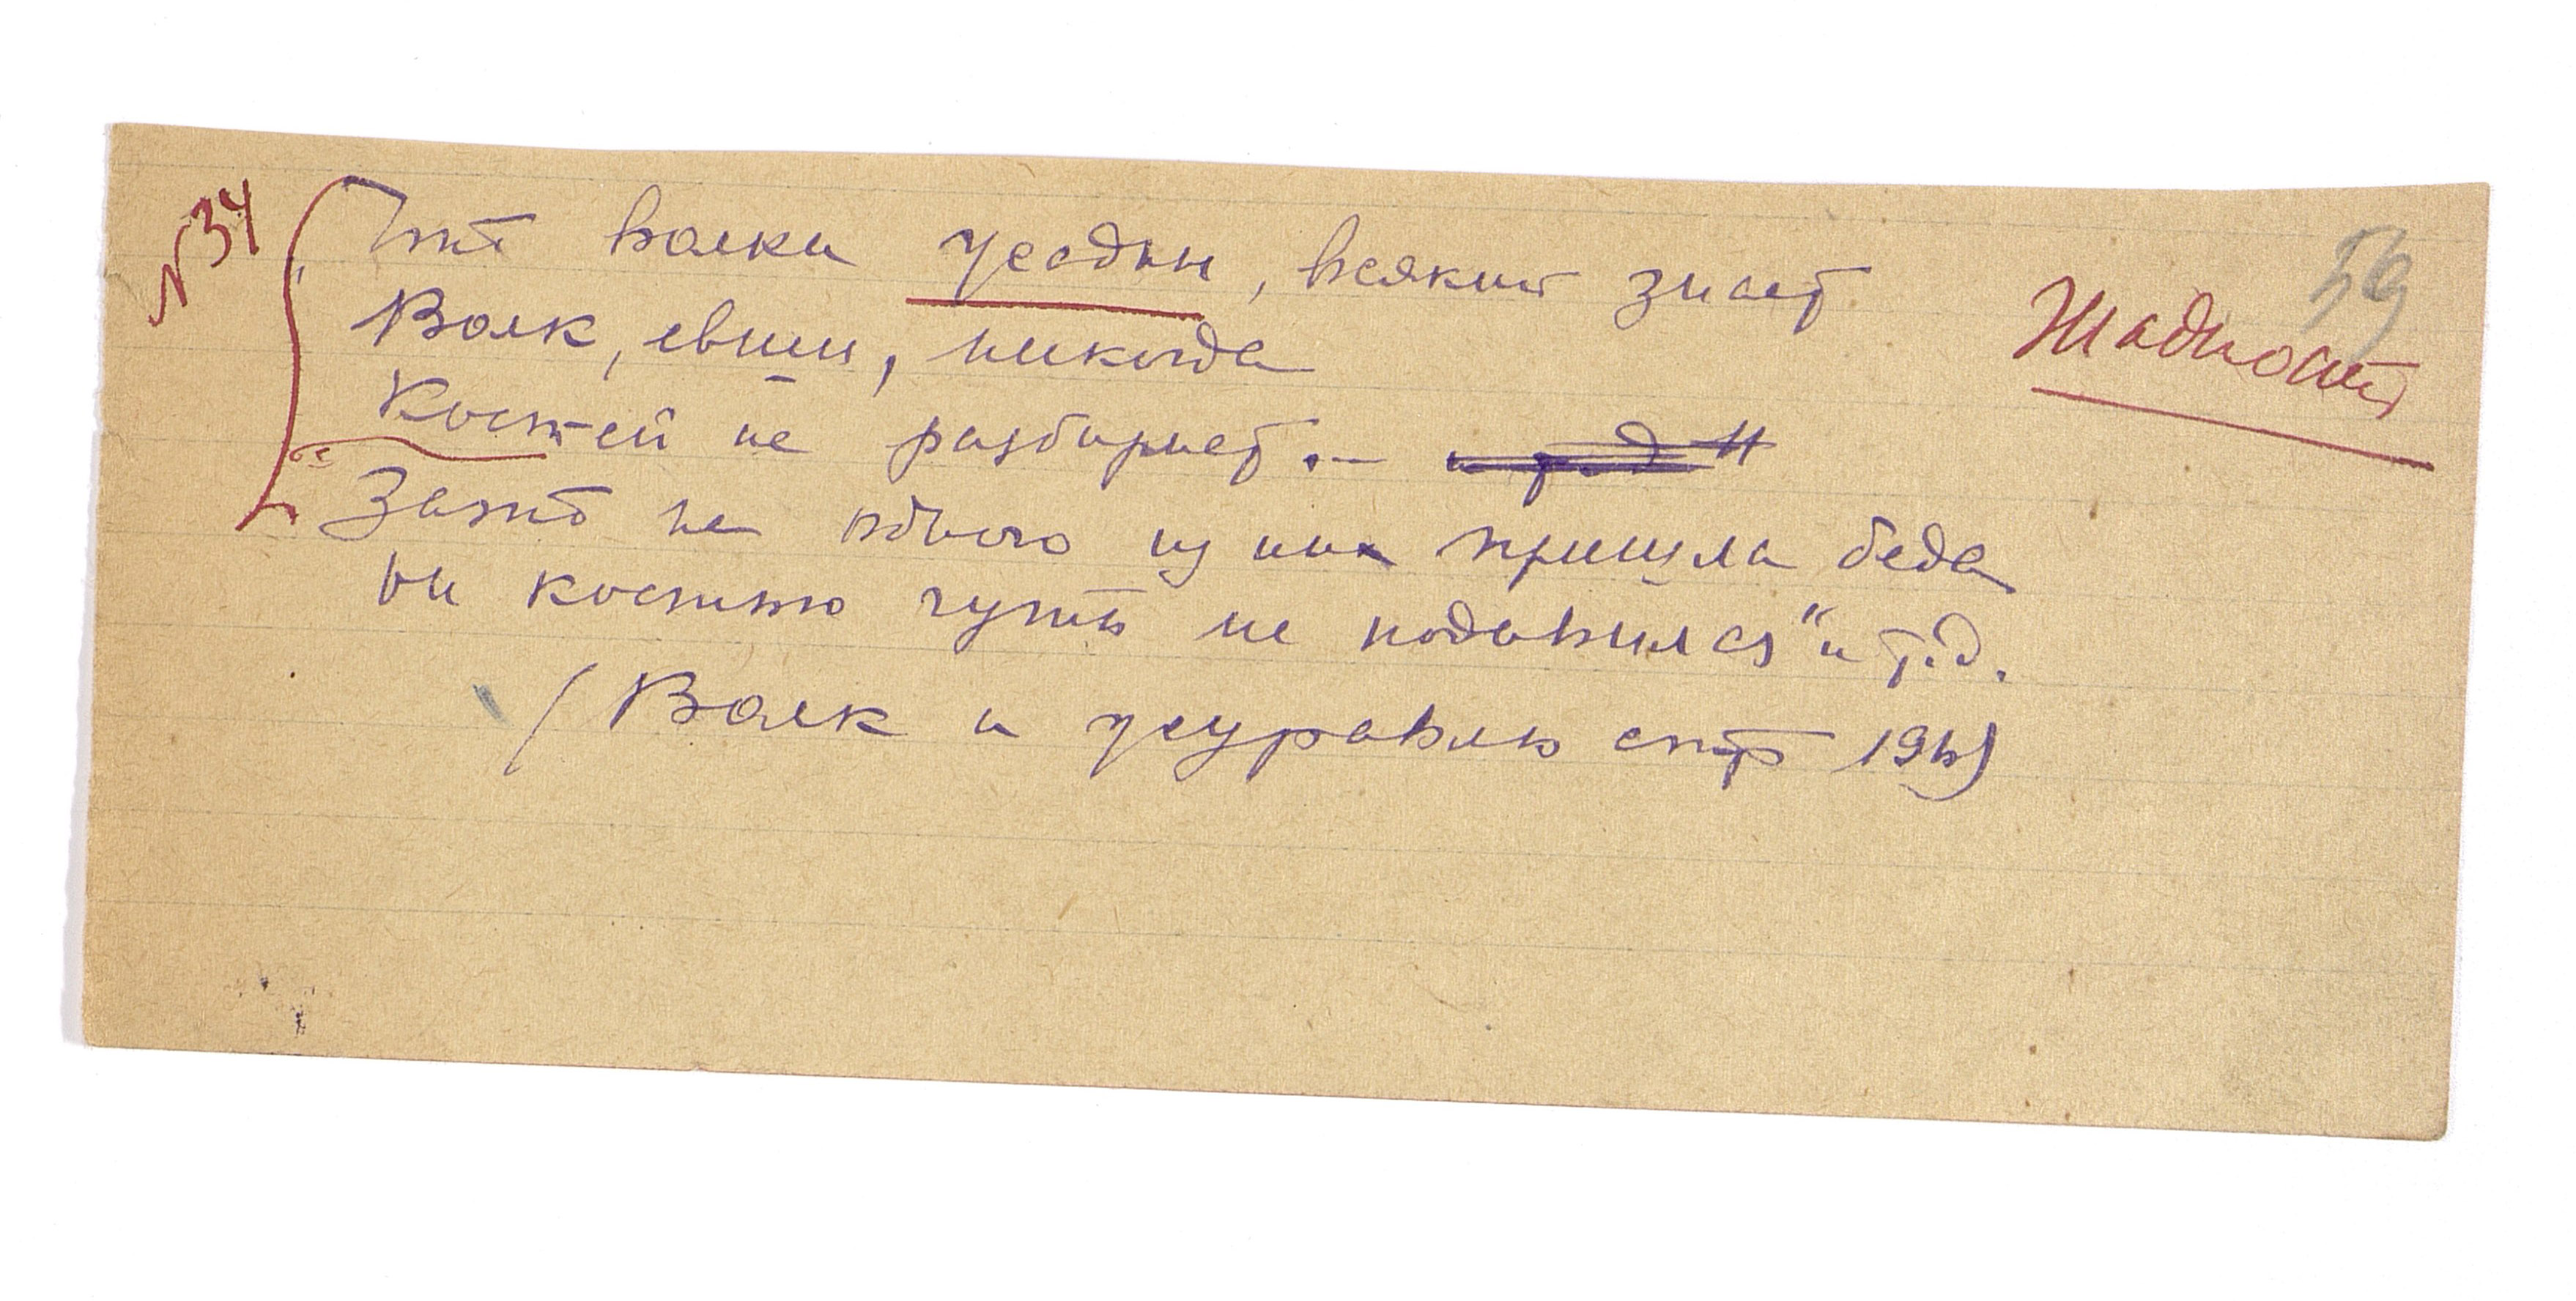 №34
59
Жадность
Что волки жадны, всякий знает
Волк, евши, никогда
Костей не разбирает. —
Зато на одного из них пришла беда
он костью чуть не подавился" и т.д.
(Волк и журавль стр 196)